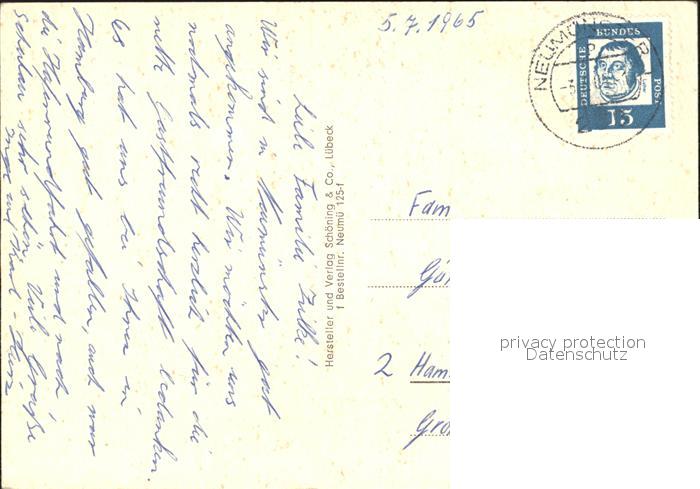 5.7.1965
NEUMÜNS
DEUTSCHE
BUNDES
POST
15
Liebe Familie
Wir sind in Neumünster gut
angekommen. Wir möchten uns
nochmals recht herzlich für die
nette Gastfreundschaft bedanken.
Es hat uns bei Ihnen in
Hamburg gut gefallen, auch war
die Hafenrundfahrt und nach
sehr schön. Viele Grüße
Inge und Karl-Heinz
Hersteller und Verlag Schöning & Co., Lübeck
f Bestellnr. Neumü 125-f
Fam
2 Ham
Gro
privacy protection
Datenschutz